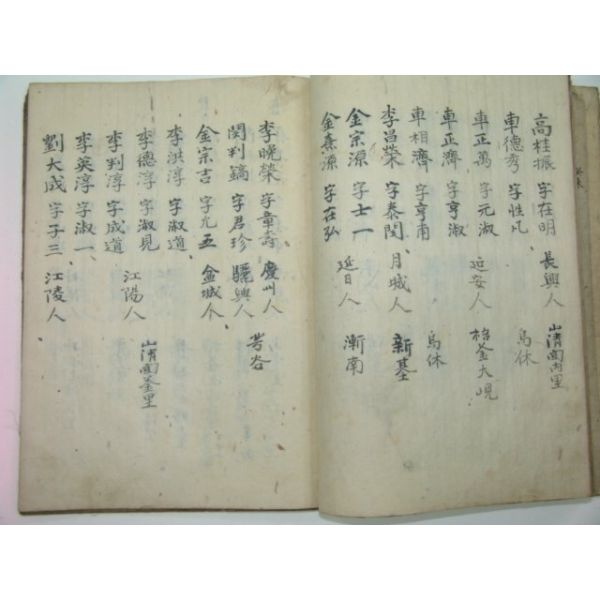 高桂振 字在明 長興人 山清面內里
車德秀 字性凡 烏休
車正萬 字元淑 延安人 大峴
車正濟 字亨淑
車相濟 字亨甫 烏休
李昌榮 字泰閔 月城人 新基
金宗源 字士一
金熹源 字在弘 延日人 漸南
李晩榮 字章壽 慶州人
閔判鎬 字君珍 驪興人 芳谷
金宗吉 字允五 金城人
李洪淳 字淑道
李德淳 字淑見 江陽人 山清面釜里
李判淳 字成道
李英淳 字淑一
劉大成 字子三 江陵人